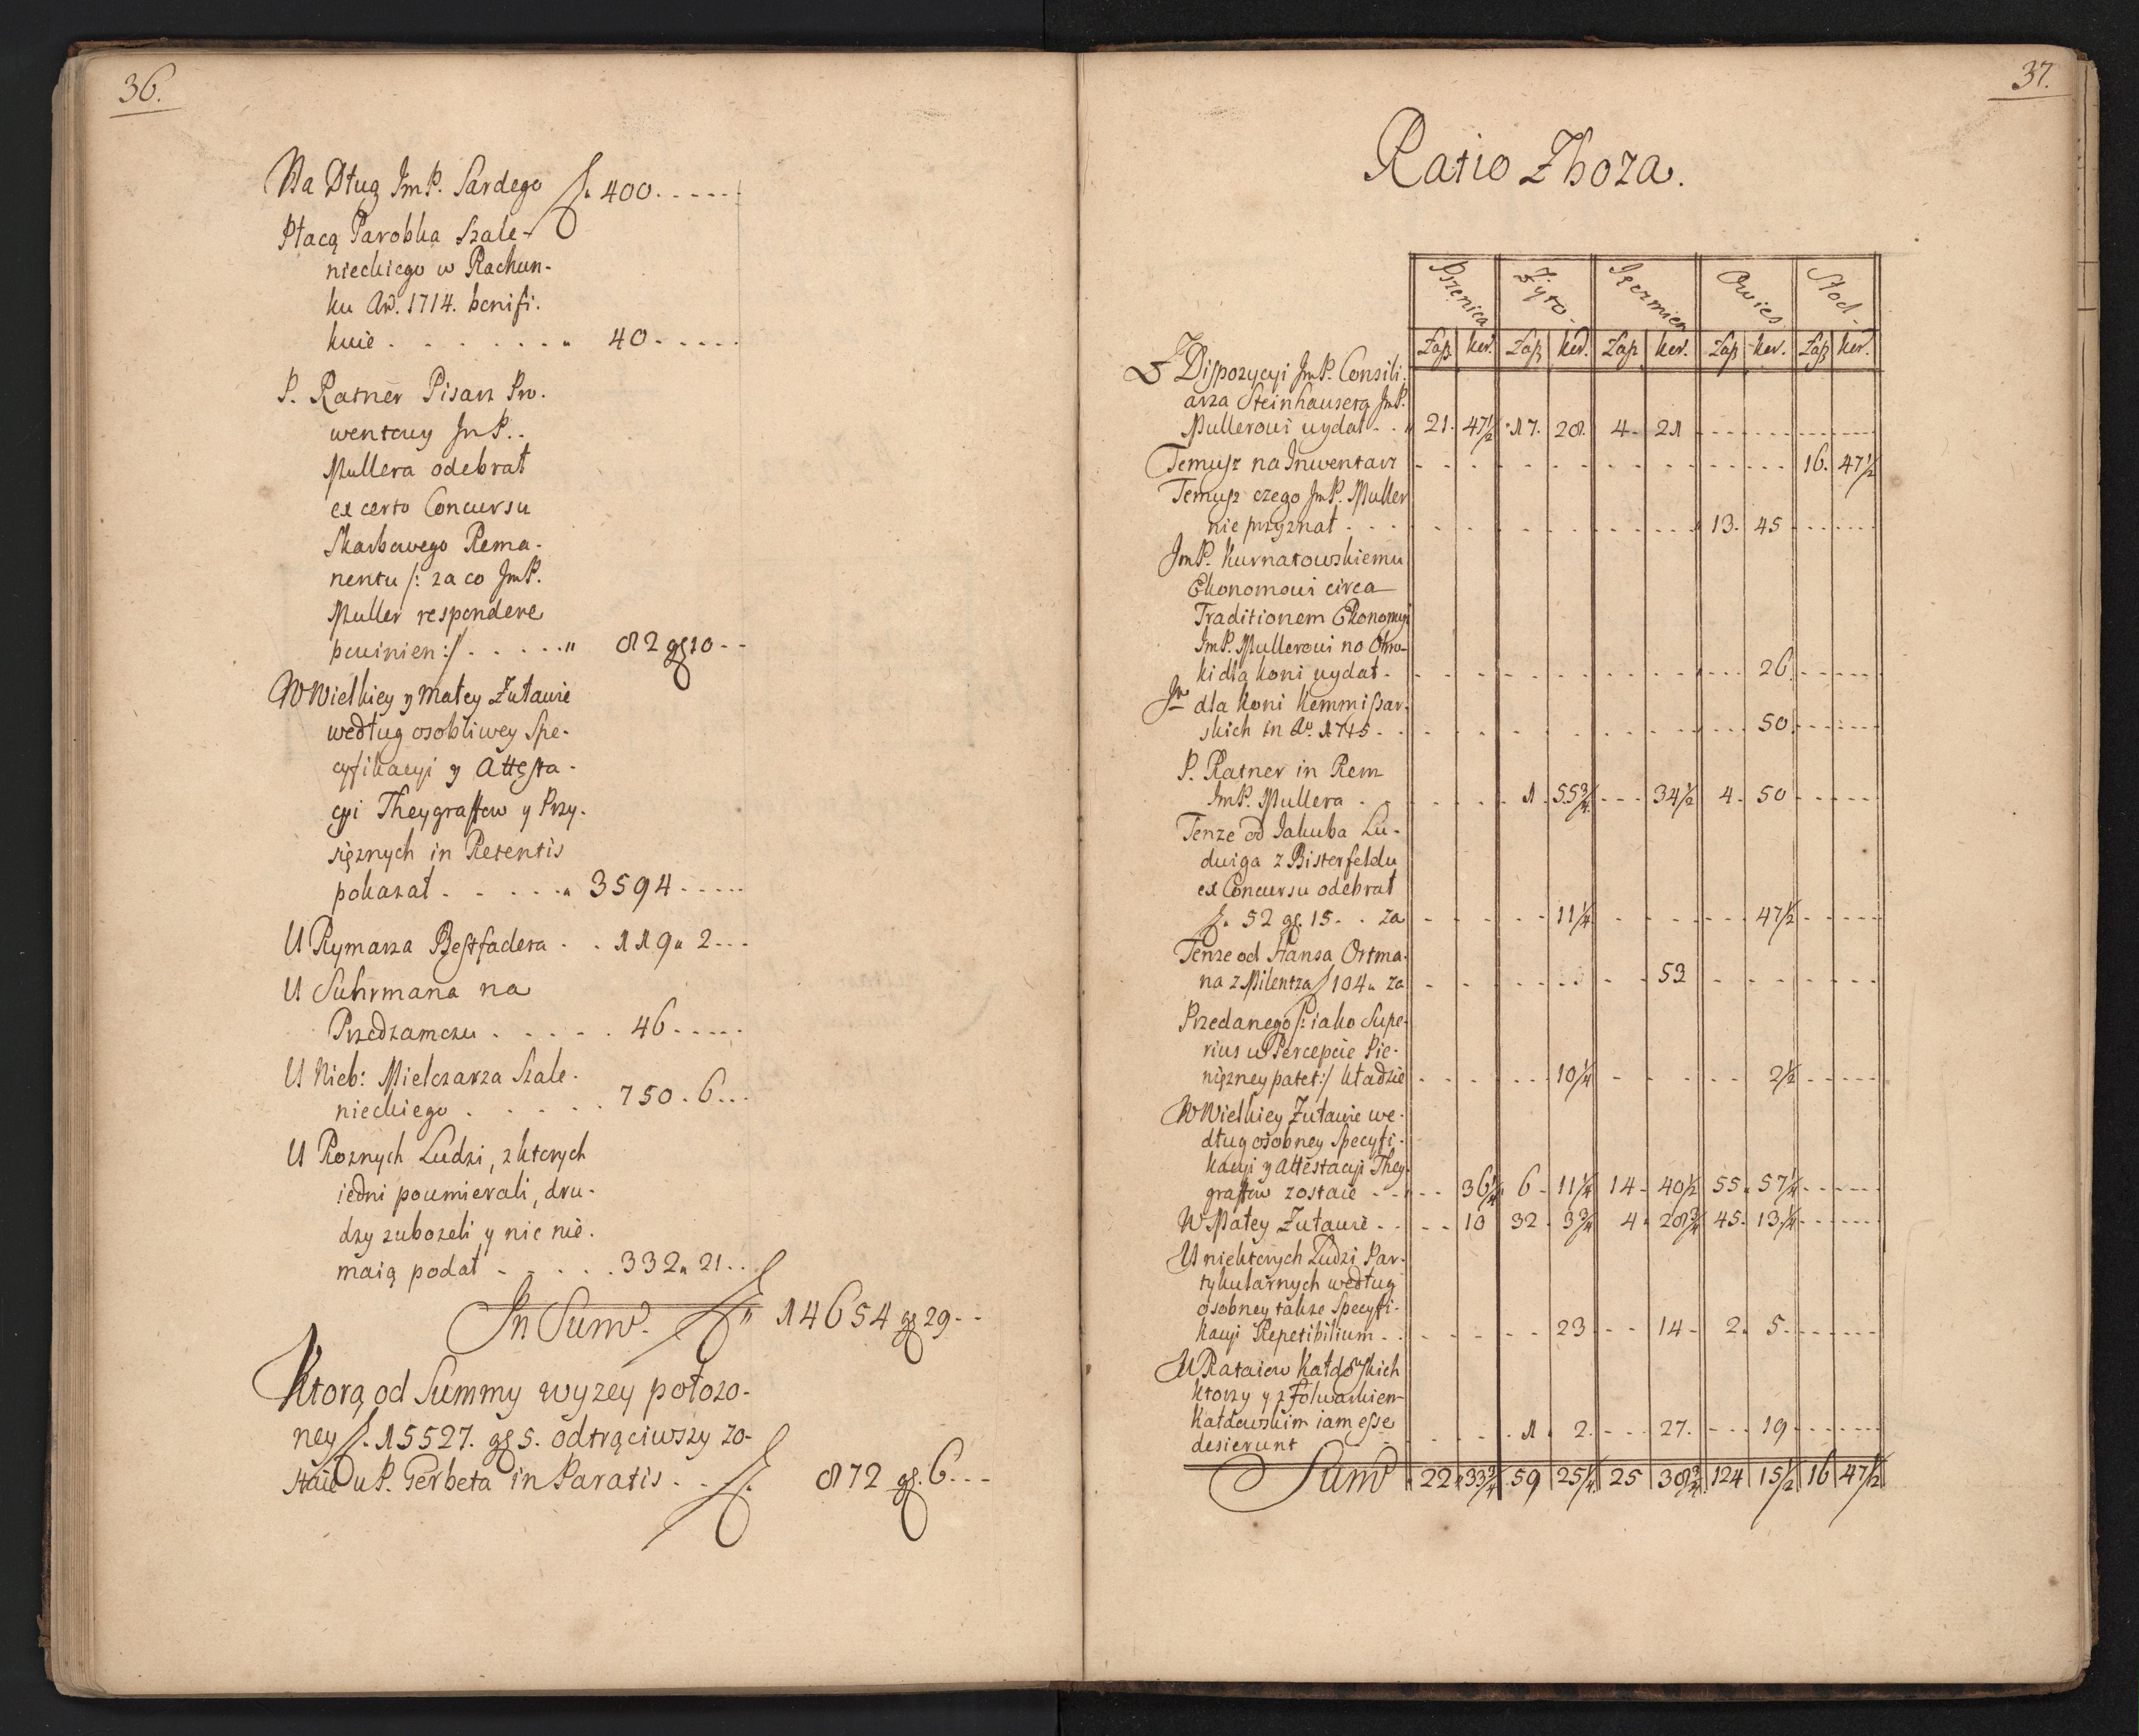 36.
Na Dług JmP. Sardego f. 400.
Płacą Parobka Szale-
nieckiego w Rachun-
ku Aō. 1714. benifi.
kuie . . . . . . . " 40
P. Ratner Pisarz Pro.
wentowy JmP.
Mullera odebrał
ex certo Concursu
Skarbowego Rema-
nentu /: za co JmP.
Muller respondere
powinien :/ . . . . . " 82 gs 10
W Wielkiey y Małey Zuławie
według osobliwey Spe-
cyfikacyi y Attesta-
cyi Theygraffow y Przy-
sięznych in Retentis
pokazał . . . . . " 3594
U Rymarza Bestfadera . . 119 " 2
U Suhrmana na
Przedzamczu . . . . . 46
U Nieb: Mielczarza Szale-
nieckiego . . . . . 750 . 6
U Roznych Ludzi, z ktorych
iedni poumierali, dru-
dzy zubozeli y nic nie.
maią podał . . . . . 332 " 21
In Sum̄. f " 14654 gs 29
Ktorą od Summy wyzey połozo-
ney f. 15527. gs 5. odtrąciwszy zo-
staie u P. Gerbeta in Paratis . . f. 872 gs. 6
37.
Ratio Zboza.
Pszenica Zyto. Ięczmien Owies Słod
Łaß. Kor. Łaß Kor. Łaß Kor. Łaß Kor. Łaß Kor.
Z Dispozycyi JmP. Consili.
arza Steinhausera JmP.
Mullerowi wydał . . 21. 47½ 17. 28. 4 21
Temusz na Inwentarz 16. 47½
Temusz czego JmP. Muller
nie przyznał . . . 13. 45
JmP. Kurnatowskiemu
Ekonomowi circa
Traditionem Ekonomyi
JmP. Mullerowi no Obro-
ki dla koni wydał . 26.
It dla koni Kommißar.
skich in Aō. 1715 . . 50
P. Ratner in Rem
JmP. Mullera . . 1 . 55¾ 34½ 4 . 50
Tenze od Iakuba Lu-
dwiga z Bisterfeldu
ex Concursu odebrał
f. 52 gs. 15 . . za 11¼ 47½
Tenze od Hansa Ortma.
na z Milentza f 104 " za 53
Przedanego /: iako Supe-
rius w Percepcie Pie-
nięzney patet :/ kładzie 10¼ 2½
W Wielkiey Zuławie we-
dług osobney Specyfi-
kacyi y Attestacyi They-
graffow zostaie . . 36¼ 6 11¼ 14 40½ 55 " 57¼
W Małey Zuławie . . 10 32 . 3¾ 4 . 28¾ 45. 13¼
U niektorych Ludzi Par-
tykularnych według
osobney takze Specyfi-
kacyi Repetibilium . . 23 14 2 . 5
U Rataiow Kałdowskich
ktorzy y z Folwarkiem
Kałdowskim iam esse
desierunt 1 . 2. 27. 19
Sum̄ 22 33¾ 59 25¼ 25 38¾ 124 15½ 16 47½